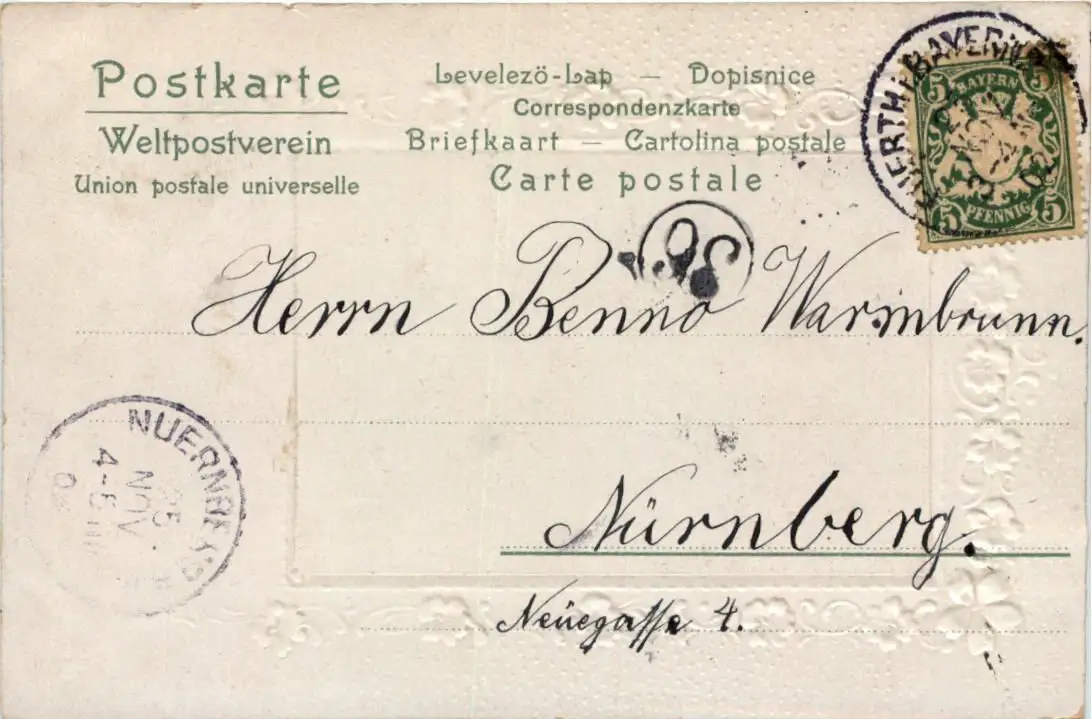 Postkarte
Weltpostverein
Union postale universelle
Levelezö-Lap — Dopisnice
Correspondenzkarte
Briefkaart — Cartolina postale
Carte postale
BAYERN
5 5
5 PFENNIG 5
Herrn Benno Warmbrunn.
Nürnberg.
Neuegasse 4.
NOV